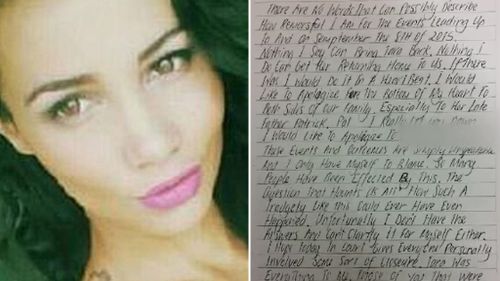 There Are No Words That Can Possibly Describe
How Remorseful I Am For The Events Leading Up
To And On September The 8TH Of 2015
Nothing I Say Can Bring Tara Back, Nothing I
Do Can Get Her Returning Home To Us. If There
Was I Would Do It In A Heart Beat. I Would
Like To Apologise From The Bottom Of My Heart To
Both Sides Of Our Family. Especially To Her Late
Father Patrick. Pat I Really Let You Down
I Would Like To Apologise To
These Events And Are Simply
And I Only Have Myself To Blame. So Many
People Have Been Effected By This. The
Question That Haunts Us All Is How Such A
Tradgety Like This Could Ever Have Even
Happened. Unfortunatly I Dont Have The
Answers And Can't Clarify It For Myself Either.
I Hope Today In Court Gives Everyone Personally
Involved Some Sort Of Clossure. Tara Was
Everything To Me, Those Of You That Were